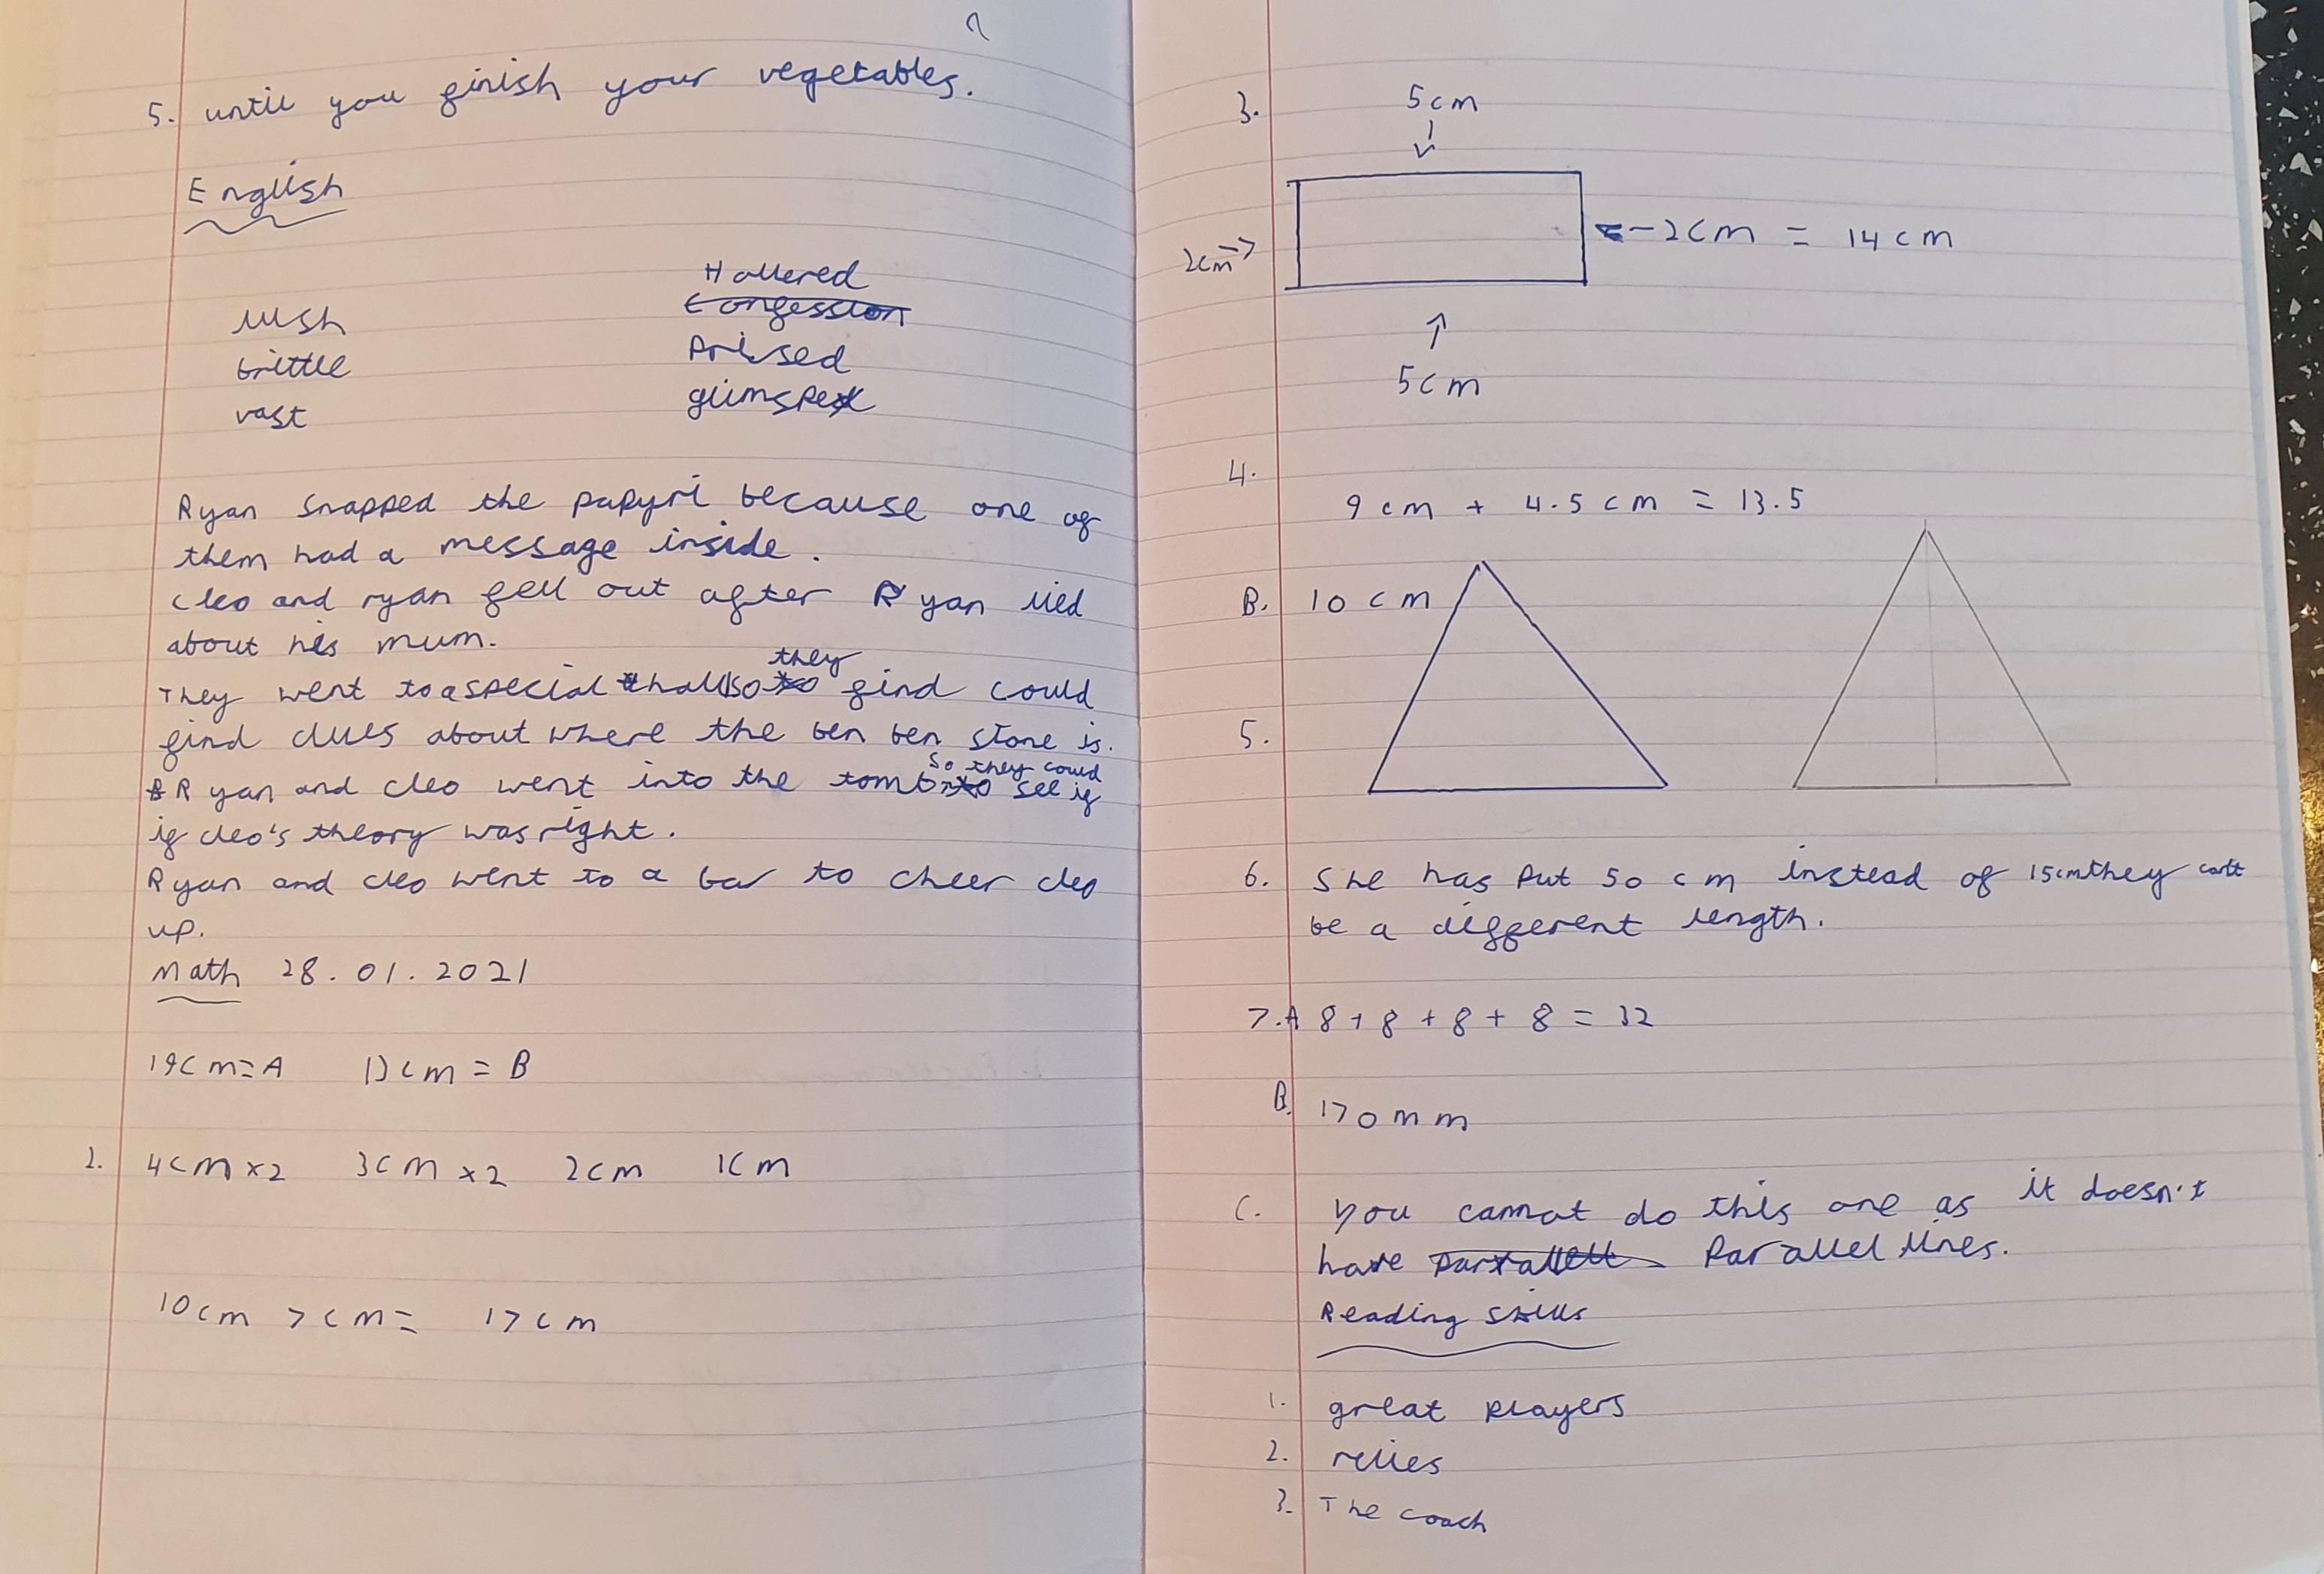 5. until you finish your vegetables.
English
lush
brittle
vast
Hollered
Confession
Prised
glimspe
Ryan snapped the papyri because one of
them had a message inside.
cleo and ryan fell out after Ryan lied
about his mum.
They went to a special hall so they find could
find clues about where the ben ben stone is.
Ryan and cleo went into the tomb so they could see if
if cleo's theory was right.
Ryan and cleo went to a bar to cheer cleo
up.
Math 28.01.2021
19cm=A 13cm=B
2. 4cm x2 3cm x2 2cm 1cm
10cm 7cm= 17cm
3. 5cm
2cm → ← 2cm = 14cm
5cm
4.
9cm + 4.5cm = 13.5
B. 10cm
5.
6. She has put 50cm instead of 15cm they cant
be a different length.
7.A 8+8+8+8=32
B. 170mm
C. You cannot do this one as it doesn't
have Parallel lines.
Reading skills
1. great players
2. relies
3. The coach